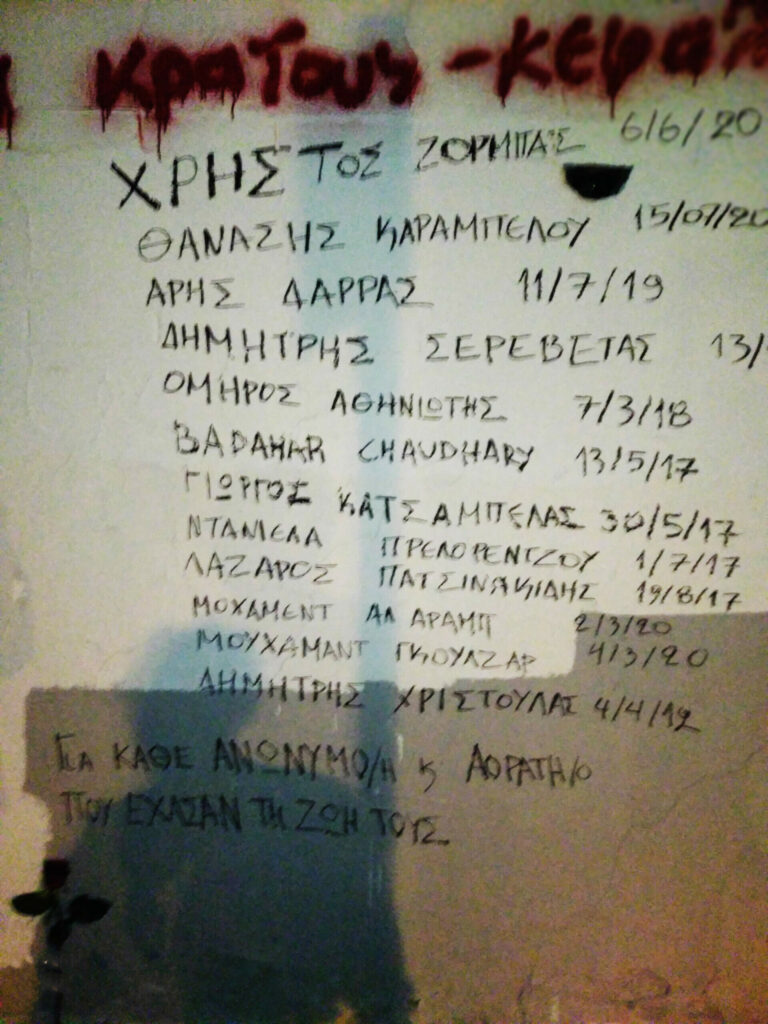 ΚΡΑΤΟΥΣ - ΚΕΦΑΛ
ΧΡΗΣΤΟΣ ΖΟΡΜΠΑΣ 6/6/20
ΘΑΝΑΣΗΣ ΚΑΡΑΜΠΕΛΟΥ 15/07/20
ΑΡΗΣ ΔΑΡΡΑΣ 11/7/19
ΔΗΜΗΤΡΗΣ ΣΕΡΕΒΕΤΑΣ 13/
ΟΜΗΡΟΣ ΑΘΗΝΙΩΤΗΣ 7/3/18
BADAHAR CHAUDHARY 13/5/17
ΓΙΩΡΓΟΣ ΚΑΤΣΑΜΠΕΛΑΣ 30/5/17
ΝΤΑΝΙΕΛΑ ΠΡΕΛΟΡΕΝΤΖΟΥ 1/7/17
ΛΑΖΑΡΟΣ ΠΑΤΣΙΝΑΚΙΔΗΣ 19/8/17
ΜΟΧΑΜΕΝΤ ΑΛ ΑΡΑΜΠ 2/3/20
ΜΟΥΧΑΜΑΝΤ ΓΚΟΥΛΖΑΡ 4/3/20
ΔΗΜΗΤΡΗΣ ΧΡΙΣΤΟΥΛΑΣ 4/4/12
Για ΚΑΘΕ ΑΝΩΝΥΜΟ/Η κ ΑΟΡΑΤΗ/Ο
ΠΟΥ ΕΧΑΣΑΝ ΤΗ ΖΩΗ ΤΟΥΣ